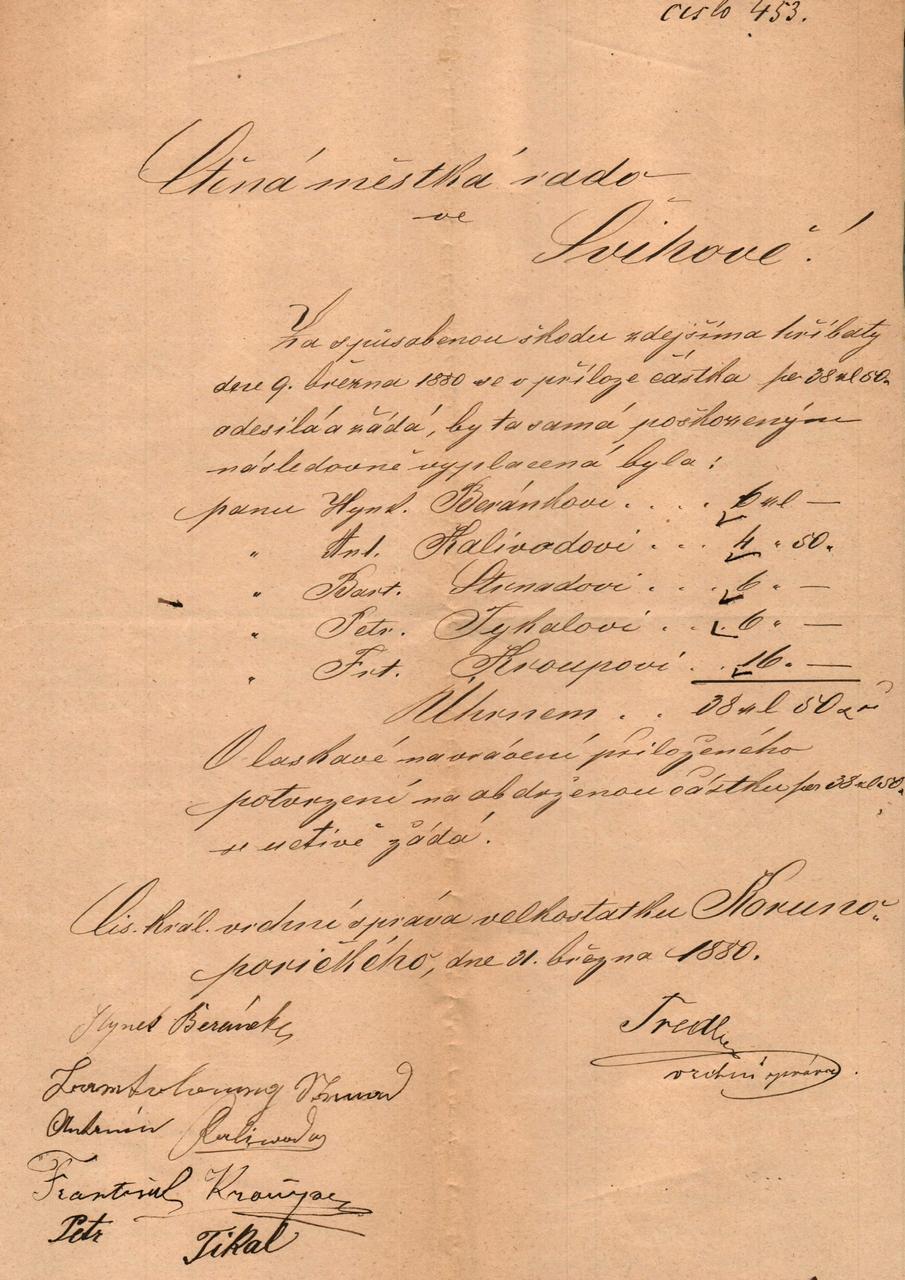 číslo 453.
Ctěná městká rado
ve
Švihově!
Za spůsobenou škodu zdejšíma hříbaty
dne 9. března 1880 se v příloze částka per 38 zl 50
odesílá a žádá, by ta samá poškozeným
následovně vyplacená byla:
panu Hynk. Beránkovi . . . . 6 zl —
" Ant. Kalivodovi . . . 4 " 50 "
" Bart. Strnadovi . . . 6 " —
" Petr. Tykalovi . . . 6 " —
" Frt. Kroupovi . . . 16 " —
Úhrnem . . 38 zl 50
O laskavé navrácení přiloženého
potvrzení na obdrženou částku per 38 zl 50
se uctivě žádá.
Cis. král. vrchní správa velkostatku Koruno-
poříčkého, dne 21. března 1880.
Hynek Beránek
vrchní správce.
Strnad
Antonín Kaliwoda
František Kroupa
Petr Tikal